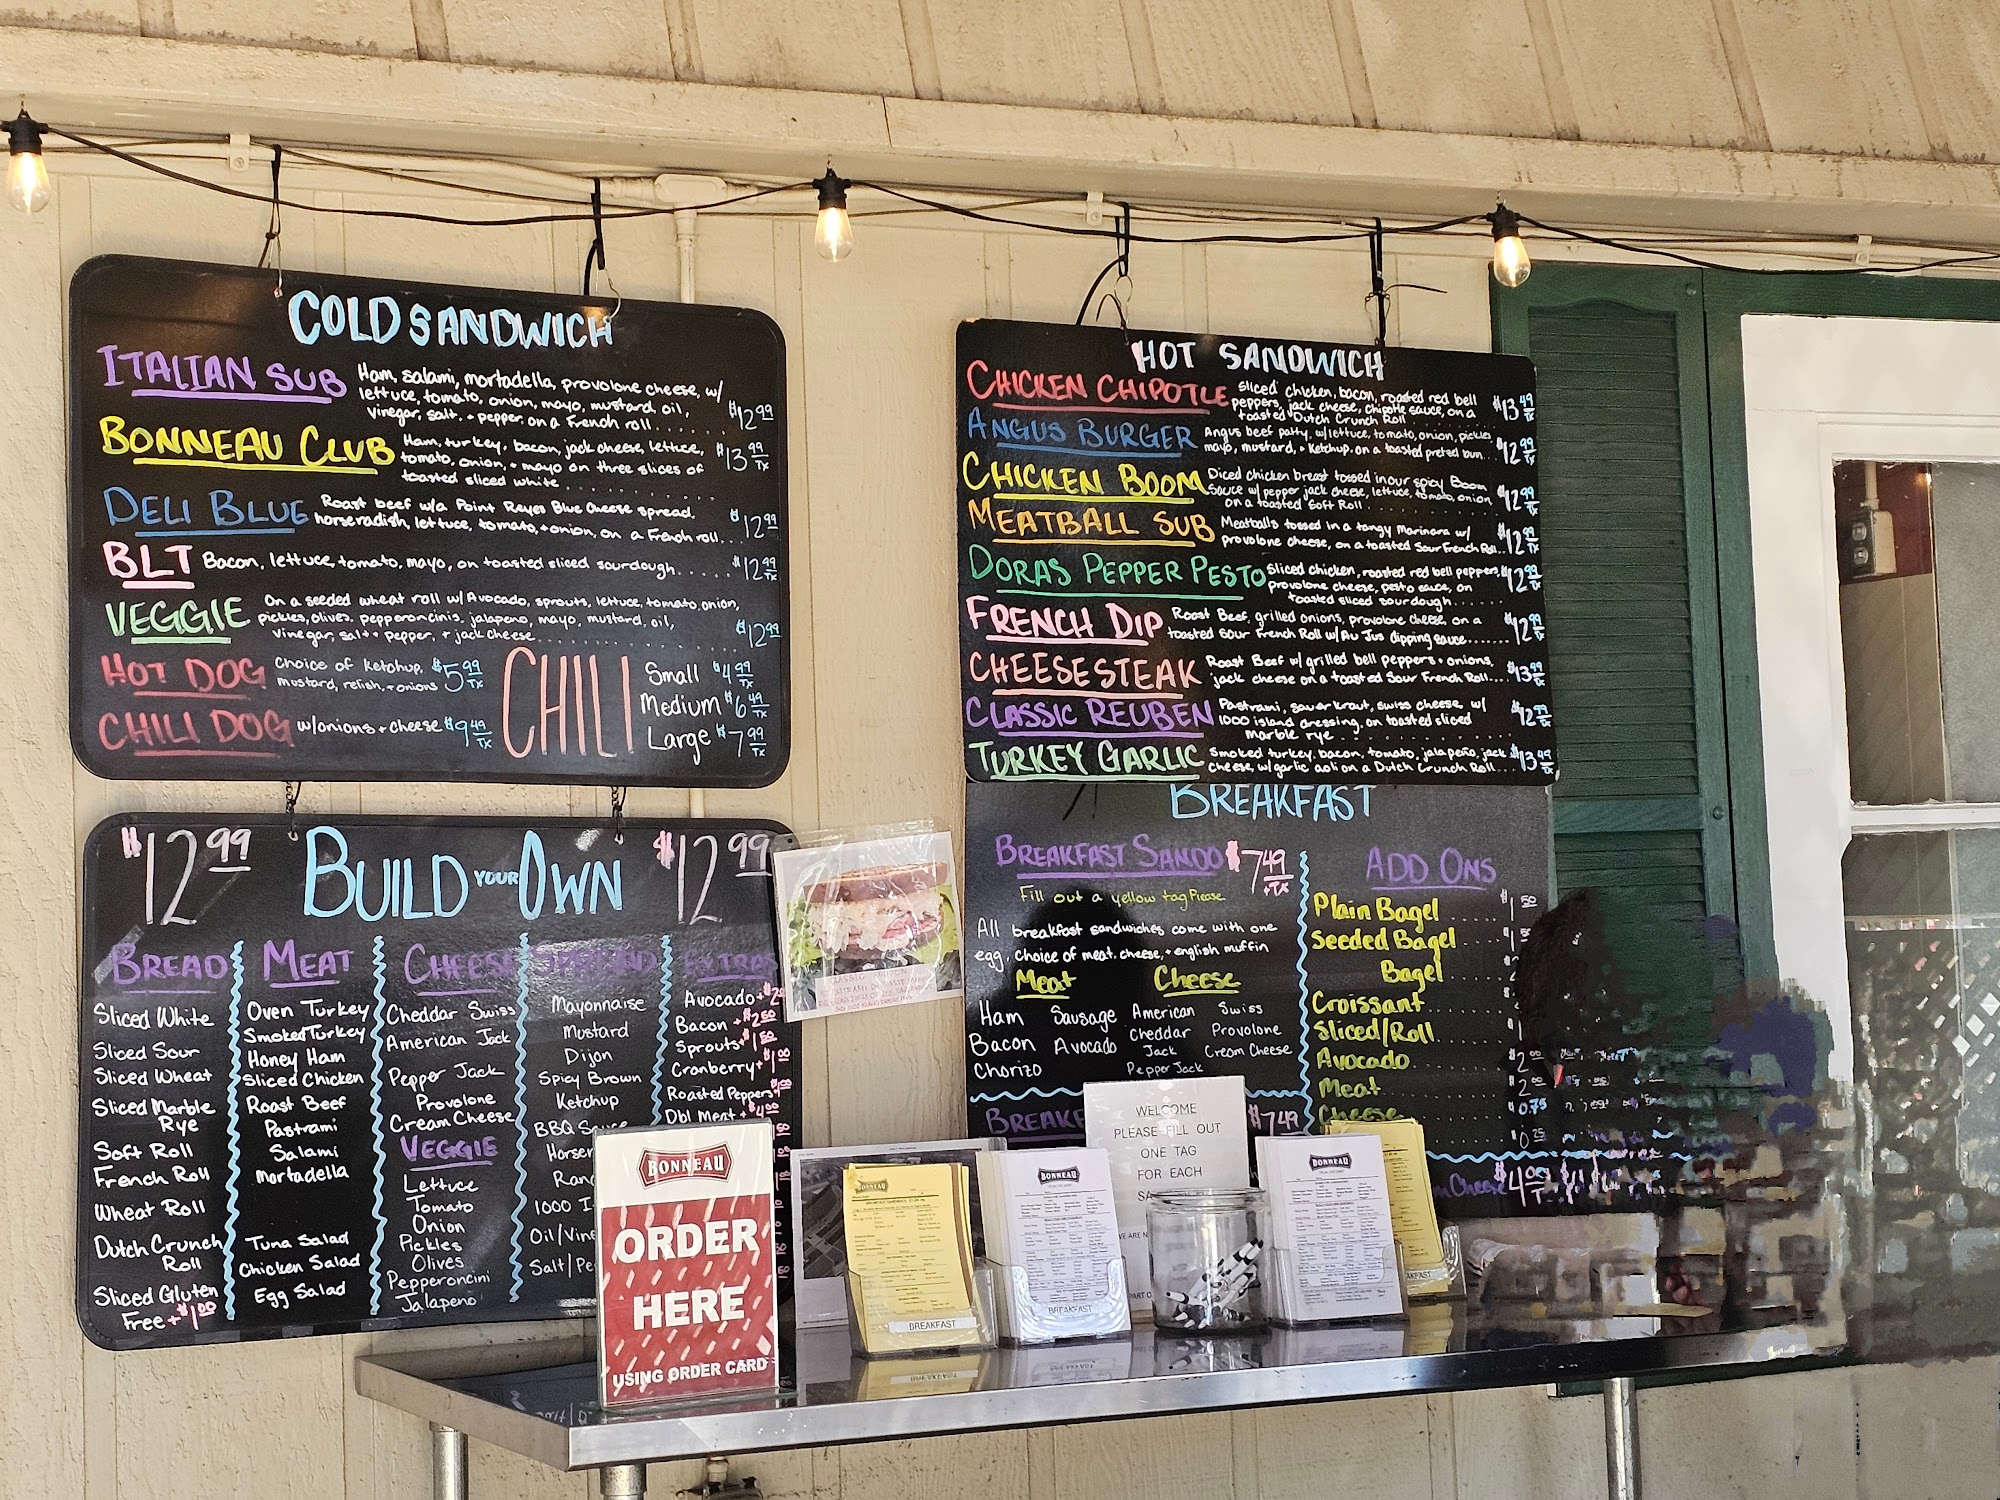 COLD SANDWICH
ITALIAN SUB Ham, salami, mortadella, provolone cheese, w/
lettuce, tomato, onion, mayo, mustard, oil,
vinegar, salt, + pepper, on a French roll...... $12.99
BONNEAU CLUB Ham, turkey, bacon, jack cheese, lettuce,
tomato, onion, + mayo on three slices of
toasted sliced white............ $13.99 TX
DELI BLUE Roast beef w/a Point Reyes Blue Cheese spread,
horseradish, lettuce, tomato, + onion, on a French roll... $12.99
BLT Bacon, lettuce, tomato, mayo, on toasted sliced sourdough...... $12.99 TX
VEGGIE On a seeded wheat roll w/ Avocado, sprouts, lettuce, tomato, onion,
pickles, olives, pepperoncinis, jalapeno, mayo, mustard, oil,
vinegar, salt + pepper, + jack cheese............ $12.99
HOT DOG Choice of Ketchup,
mustard, relish, + onions $5.99 TX
CHILI DOG w/onions + cheese $9.49 TX
CHILI
Small $4.99 TX
Medium $6.49 TX
Large $7.99 TX
HOT SANDWICH
CHICKEN CHIPOTLE Sliced chicken, bacon, roasted red bell
peppers, jack cheese, chipotle sauce, on a
toasted Dutch Crunch Roll....... $13.49 TX
ANGUS BURGER Angus beef patty, w/lettuce, tomato, onion, pickles,
mayo, mustard, + Ketchup, on a toasted preted bun... $12.99 TX
CHICKEN BOOM Diced chicken breast tossed in our spicy Boom
Sauce w/ pepper jack cheese, lettuce, tomato, onion
on a toasted Soft Roll...... $12.99 TX
MEATBALL SUB Meatballs tossed in a tangy Marinara w/
provolone cheese, on a toasted Sour French Roll... $12.99 TX
DORAS PEPPER PESTO Sliced chicken, roasted red bell peppers,
provolone cheese, pesto sauce, on
toasted sliced sourdough...... $12.99 TX
FRENCH DIP Roast Beef, grilled onions, provolone cheese, on a
toasted Sour French Roll w/ Au Jus dipping sauce....... $12.99 TX
CHEESESTEAK Roast Beef w/ grilled bell peppers + onions,
jack cheese on a toasted Sour French Roll.... $13.99 TX
CLASSIC REUBEN Pastrami, sauerkraut, swiss cheese, w/
1000 island dressing, on toasted sliced
marble rye............ $12.99 TX
TURKEY GARLIC Smoked turkey, bacon, tomato, jalapeño, jack
cheese, w/garlic aoli on a Dutch Crunch Roll... $13.49 TX
$12.99 BUILD YOUR OWN $12.99
BREAD
Sliced White
Sliced Sour
Sliced Wheat
Sliced Marble
Rye
Soft Roll
French Roll
Wheat Roll
Dutch Crunch
Roll
Sliced Gluten
Free + $1.00
MEAT
Oven Turkey
Smoked Turkey
Honey Ham
Sliced Chicken
Roast Beef
Pastrami
Salami
Mortadella
Tuna Salad
Chicken Salad
Egg Salad
CHEESE
Cheddar Swiss
American Jack
Pepper Jack
Provolone
Cream Cheese
VEGGIE
Lettuce
Tomato
Onion
Pickles
Olives
Pepperoncini
Jalapeno
Mayonnaise
Mustard
Dijon
Spicy Brown
Ketchup
BBQ Sauce
1000 I
Oil/Vine
Salt/Pe
EXTRAS
Avocado +
Bacon + $2.50
Sprouts + $1.50
Cranberry + $1.00
Roasted Peppers
Dbl Meat + $4.00
BREAKFAST
BREAKFAST SANDO $7.49 +TX
Fill out a yellow tag Please
All breakfast sandwiches come with one
egg, choice of meat, cheese, + english muffin
Meat
Ham Sausage
Bacon Avocado
Chorizo
Cheese
American Swiss
Cheddar Provolone
Jack Cream Cheese
Pepper Jack
BREAKF $7.49
ADD ONS
Plain Bagel.... $1.50
Seeded Bagel
Bagel
Croissant
Sliced/Roll
Avocado
Meat
Cheese
WELCOME
PLEASE FILL OUT
ONE TAG
FOR EACH
BONNEAU
ORDER
HERE
USING ORDER CARD
BONNEAU
BREAKFAST
BONNEAU
BREAKFAST
BONNEAU